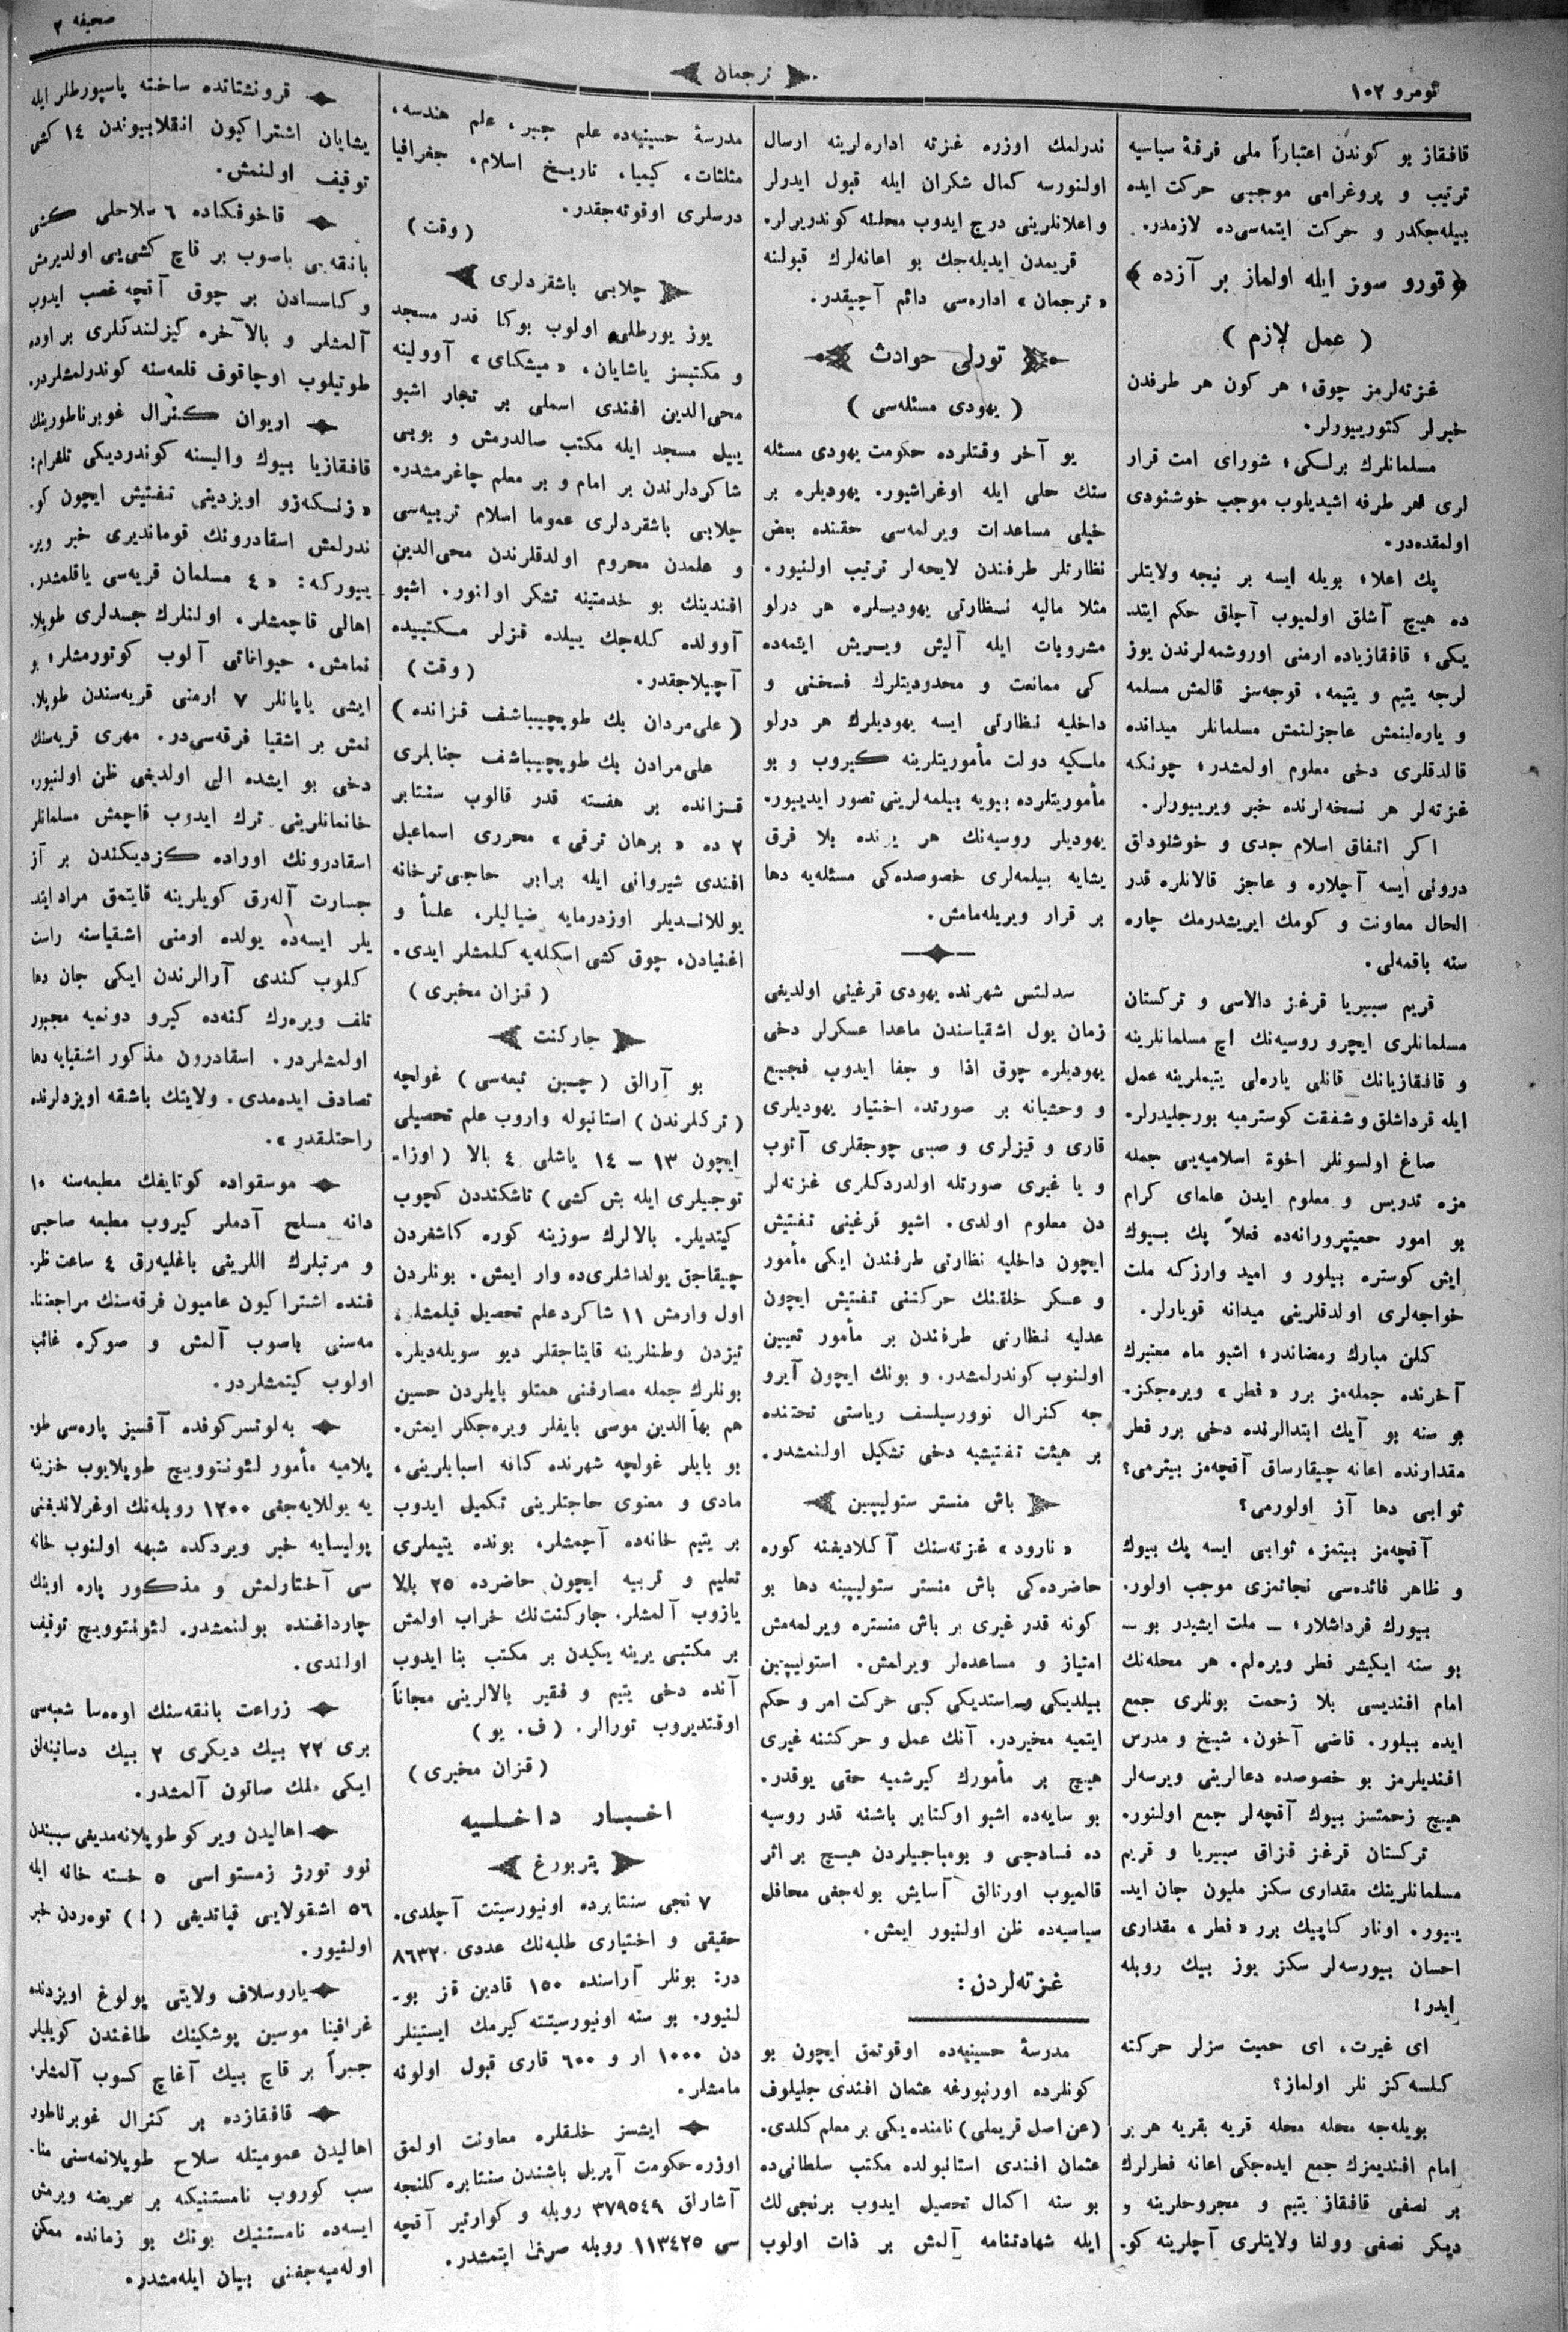 نومرو ١٠٢
ترجمان
صحيفه ٢
قافقاز بو كوندن اعتباراً ملى فرقۀ سياسيه
ترتيب و پروغرامى موجبى حركت ايده
بيله‌جكدر و حركت ايتمه‌سى‌ده لازمدر.
﴿ قورو سوز ايله اولماز بر آزده ﴾
( عمل لازم )
غزته‌لرمز چوق؛ هر كون هر طرفدن
خبرلر كتوريیورلر.
مسلمانلرك برلكى؛ شوراى امت قرار
لرى هر طرفه اشيديلوب موجب خوشنودى
اولمقده‌در.
پك اعلا؛ بويله ايسه بر نيجه ولايتلر
ده هيچ آشلق اولميوب آچلق حكم ايتد-
يكى؛ قافقازياده ارمنى اوروشمه‌لرندن يوز
لرجه يتيم و يتيمه، قوجه‌سز قالمش مسلمه
و ياره‌لنمش عاجزلنمش مسلمانلر ميدانده
قالدقلرى دخى معلوم اولمشدر؛ چونكه
غزته‌لر هر نسخه‌لرنده خبر ويريیورلر.
اكر اتفاق اسلام جدى و خوشنوداق
درونى ايسه آچلاره و عاجز قالانلره قدر
الحال معاونت و كومك ايريشدرمك چاره
سنه باقمه‌لى.
قريم سبيريا قرغز دالاسى و تركستان
مسلمانلرى ايچرو روسيه‌نك اچ مسلمانلرينه
و قافقازيانك قانلى ياره‌لى يتيملرينه عمل
ايله قرداشلق و شفقت كوسترميه بورجليدرلر.
صاغ اولسونلر اخوة اسلاميه‌يى جمله
مزه تدريس و معلوم ايدن علماى كرام
بو امور حميتپرورانه‌ده فعلاً پك بيوك
ايش كوستره بيلور و اميد وارزكه ملت
خواجه‌لرى اولدقلرينى ميدانه قويارلر.
كلن مبارك رمضاندر؛ اشبو ماه معتبرك
آخرنده جمله‌مز برر «فطر» ويره‌جكز.
بو سنه بو آيك ابتدالرنده دخى برر فطر
مقدارنده اعانه چيقارساق آقچه‌مز بيترمى؟
ثوابى دها آز اولورمى؟
آقچه‌مز بيتمز، ثوابى ايسه پك بيوك
و ظاهر فائده‌سى نجاتمزى موجب اولور.
بيورك قرداشلار؛ — ملت ايشيدر بو —
بو سنه ايكيشر فطر ويره‌لم. هر محله‌نك
امام افنديسى بلا زحمت بونلرى جمع
ايده بيلور. قاضى آخون، شيخ و مدرس
افنديلرمز بو خصوصده دعالرينى ويرسه‌لر
هيچ زحمتسز بيوك آقچه‌لر جمع اولنور.
تركستان قرغز قزاق سبيريا و قريم
مسلمانلرينك مقدارى سكز مليون جان ايد-
يیور. اونار كاپيك برر «فطر» مقدارى
احسان بيورسه‌لر سكز يوز بيك روبله
ايدر!
اى غيرت، اى حميت سزلر حركته
كلسه‌كز نلر اولماز؟
بويله‌جه محله محله قريه بقريه هر بر
امام افنديمزك جمع ايده‌جكى اعانه فطرلرك
بر نصفى قافقاز يتيم و مجروحلرينه و
ديكر نصفى وولغا ولايتلرى آچلرينه كو-
ندرلمك اوزره غزته اداره‌لرينه ارسال
اولنورسه كمال شكران ايله قبول ايدرلر
و اعلانلرينى درج ايدوب محلنه كوندريرلر.
قريمدن ايديله‌جك بو اعانه‌لرك قبولنه
«ترجمان» اداره‌سى دائم آچيقدر.
تورلى حوادث
( يهودى مسئله‌سى )
بو آخر وقتلرده حكومت يهودى مسئله
سنك حلى ايله اوغراشيور. يهوديلره بر
خيلى مساعدات ويرلمه‌سى حقنده بعض
نظارتلر طرفندن لايحه‌لر ترتيب اولنيور.
مثلا ماليه نظارتى يهوديلره هر درلو
مشروبات ايله آليش ويريش ايتمه‌ده
كى ممانعت و محدوديتلرك فسخنى و
داخليه نظارتى ايسه يهوديلرك هر درلو
ملكيه دولت مأموريتلرينه كيروب و بو
مأموريتلرده بيويه بيلمه‌لرينى تصور ايديیور.
يهوديلر روسيه‌نك هر يرنده بلا فرق
يشايه بيلمه‌لرى خصوصده‌كى مسئله‌يه دها
بر قرار ويريله‌مامش.
سدلتس شهرنده يهودى قرغينى اولديغى
زمان يول اشقياسندن ماعدا عسكرلر دخى
يهوديلره چوق اذا و جفا ايدوب فجيع
و وحشيانه بر صورتده اختيار يهوديلرى
قارى و قيزلرى و صبى چوجقلرى آتوب
و يا غيرى صورتله اولدردكلرى غزته‌لر
دن معلوم اولدى. اشبو قرغينى تفتيش
ايچون داخليه نظارتى طرفندن ايكى مأمور
و عسكر خلقنك حركتنى تفتيش ايچون
عدليه نظارتى طرفندن بر مأمور تعيين
اولنوب كوندرلمشدر. و بونك ايچون آيرو
جه كنرال نوورسيلسف رياستى تحتنده
بر هيئت تفتيشيه دخى تشكيل اولنمشدر.
باش منستر ستوليپين
«نارود» غزته‌سنك آكلاديغنه كوره
حاضرده‌كى باش منستر ستوليپينه دها بو
كونه قدر غيرى بر باش منستره ويرلمه‌مش
امتياز و مساعده‌لر ويرلمش. استوليپين
بيلديكى و استديكى كبى حركت امر و حكم
ايتميه مخيردر. آنك عمل و حركتنه غيرى
هيچ بر مأمورك كيرشميه حقى يوقدر.
بو سايه‌ده اشبو اوكتابر باشنه قدر روسيه
ده فسادجى و بومباجيلردن هيچ بر اثر
قالميوب اورتالق آسايش بوله‌جغى محافل
سياسيه‌ده ظن اولنيور ايمش.
غزته‌لردن:
مدرسۀ حسينيه‌ده اوقوتمق ايچون بو
كونلرده اورنبورغه عثمان افندى جليلوف
(عن اصل قريملى) نامنده يكى بر معلم كلدى.
عثمان افندى استانبولده مكتب سلطانى‌ده
بو سنه اكمال تحصيل ايدوب برنجى لك
ايله شهادتنامه آلمش بر ذات اولوب
مدرسۀ حسينيه‌ده علم جبر، علم هندسه،
مثلثات، كيميا، تاريخ اسلام، جغرافيا
درسلرى اوقوته‌جقدر.
( وقت )
چلابى باشقردلرى
يوز يورطلى اولوب بوكا قدر مسجد
و مكتبسز ياشايان، «ميشكاى» آوولينه
محى‌الدين افندى اسملى بر تجار اشبو
ييل مسجد ايله مكتب صالدرمش و بوبى
شاكردلرندن بر امام و بر معلم چاغرمشدر.
چلابى باشقردلرى عموما اسلام تربيه‌سى
و علمدن محروم اولدقلرندن محى‌الدين
افندينك بو خدمتينه تشكر اولنور. اشبو
آوولده كله‌جك ييلده قزلر مكتبيده
آچيلاجقدر.
( وقت )
( على‌مردان بك طوپچيباشف قزانده )
على‌مرادن بك طوپچيباشف جنابلرى
قزانده بر هفته قدر قالوب سنتابر
٢ ده «برهان ترقى» محررى اسماعيل
افندى شيروانى ايله برابر حاجى‌ترخانه
يوللانديلر اوزدرمايه ضياليلر، علمأ و
اغنيادن، چوق كشى اسكله‌يه كلمشلر ايدى.
( قزان مخبرى )
جاركنت
بو آرالق (چين تبعه‌سى) غولجه
(تركلرندن) استانبوله واروب علم تحصيلى
ايچون ١٣ – ١٤ ياشلى ٤ بالا (اوزا-
توجيلرى ايله بش كشى) تاشكنددن كچوب
كيتديلر. بالالرك سوزينه كوره كاشغردن
چيقاجق يولداشلرى‌ده وار ايمش. بونلردن
اول وارمش ١١ شاكرد علم تحصيل قيلمشلر.
تيزدن وطنلرينه قايتاجقلر ديو سويله‌ديلر.
بونلرك جمله مصارفنى همتلو بايلردن حسين
هم بهأالدين موسى بايفلر ويره‌جكلر ايمش.
بو بايلر غولجه شهرنده كافه اسبابلرينى،
مادى و معنوى حاجتلرينى تكميل ايدوب
بر يتيم خانه‌ده آچمشلر. بونده يتيملرى
تعليم و تربيه ايچون حاضرده ٢٥ بالا
يازوب آلمشلر. جاركنت‌نك خراب اولمش
بر مكتبى يرينه يكيدن بر مكتب بنا ايدوب
آنده دخى يتيم و فقير بالالرينى مجاناً
اوقتديروب تورالر. (ف. يو)
( قزان مخبرى )
اخبار داخليه
پتربورغ
٧ نجى سنتابرده اونيورسيتت آچلدى.
حقيقى و اختيارى طلبه‌نك عددى ٨٦٣٢
در: بونلر آراسنده ١٥٠ قادين قز بو-
لنيور. بو سنه اونيورسيتته كيرمك ايستينلر
دن ١٠٠٠ ار و ٦٠٠ قارى قبول اولونه
مامشلر.
ايشسز خلقلره معاونت اولمق
اوزره حكومت آپريل باشندن سنتابره كلنجه
آشاراق ٣٧٩٥٤٩ روبله و كوارتير آقچه
سى ١١٣٤٢٥ روبله صرف ايتمشدر.
قرونشتاتده ساخته پاسپورطلر ايله
يشايان اشتراكيون انقلابيوندن ١٤ كشى
توقيف اولنمش.
قاخوفكاده ٦ سلاحلى كشى
بانقه‌يى باصوب بر قاچ كشى‌يى اولديرمش
و كاسسادن بر چوق آقچه غصب ايدوب
آلمشلر و بالاآخره كيزلندكلرى بر اوده
طوتيلوب اوچاقوف قلعه‌سنه كوندرلمشلردر.
اريوان كنرال غوبرناطورينك
قافقازيا بيوك واليسنه كوندرديكى تلغرام:
«زنكه‌زو اويزدينى تفتيش ايچون كو-
ندرلمش اسقادرونك قومانديرى خبر وير-
يیوركه: «٤ مسلمان قريه‌سى ياقلمشدر.
اهالى قاچمشلر، اولنلرك جسدلرى طوپلا-
نمامش، حيواناتى آلوب كوتورمشلر؛ بو
ايشى ياپانلر ٧ ارمنى قريه‌سندن طوپلا-
نمش بر اشقيا فرقه‌سى‌در. مهرى قريه‌سنك
دخى بو ايشده الى اولديغى ظن اولنيور.
خانمانلرينى ترك ايدوب قاچمش مسلمانلر
اسقادرونك اوراده كزديكندن بر آز
جسارت آله‌رق كويلرينه قايتمق مراد ايتد-
يلر ايسه‌ده يولده ارمنى اشقياسنه راست
كلوب كندى آرالرندن ايكى جان دها
تلف ويره‌رك كنه‌ده كيرو دونميه مجبور
اولمشلردر. اسقادرون مذكور اشقيايه دها
تصادف ايده‌مدى. ولايتك باشقه اويزدلرنده
راحتلقدر».
موسقواده كوتايفك مطبعه‌سنه ١٠
دانه مسلح آدملر كيروب مطبعه صاحبى
و مرتبلرك اللرينى باغليه‌رق ٤ ساعت ظر-
فنده اشتراكيون عاميون فرقه‌سنك مراجعتنا-
مه‌سنى باصوب آلمش و صوكره غائب
اولوب كيتمشلردر.
به‌لوتسركوفده آقسيز پاره‌سى طو-
پلاميه مأمور لئونتوويچ طوپلايوب خزينه
يه يوللايه‌جغى ١٢٠٠ روبله‌نك اوغرلانديغنى
پوليسايه خبر ويردكده شبهه اولنوب خانه
سى آختارلمش و مذكور پاره اوينك
چارداغنده بولنمشدر. لئونتوويچ توقيف
اولندى.
زراعت بانقه‌سنك اوده‌سا شعبه‌سى
برى ٢٢ بيك ديكرى ٢ بيك دساتينه‌لق
ايكى ملك صاتون آلمشدر.
اهاليدن ويركو طوپلانه‌مديغى سببندن
نوو تورژ زمستواسى ٥ خسته خانه ايله
٥٦ اشقولايى قپاتديغى (!) توه‌ردن خبر
اولنيور.
ياروسلاف ولايتى پولوغ اويزدنده
غرافينا موسين پوشكينك طاغندن كويليلر
جبراً بر قاچ بيك آغاچ كسوب آلمشلر.
قافقازده بر كنرال غوبرناطور
اهاليدن عموميتله سلاح طوپلانمه‌سنى منا-
سب كوروب نامستنيكه بر عريضه ويرمش
ايسه‌ده نامستنيك بونك بو زمانده ممكن
اوله‌ميه‌جغنى بيان ايله‌مشدر.